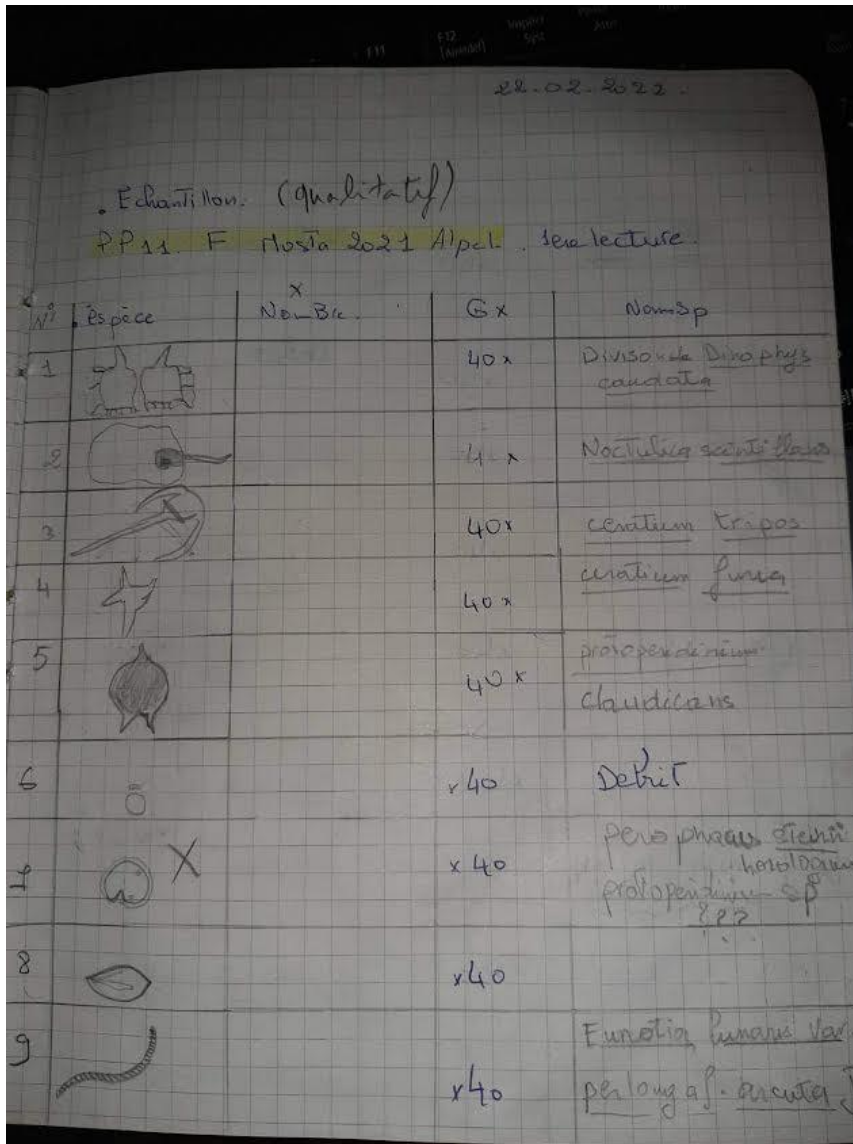 F11 F12
22-02-2022.
. Echantillon. (qualitatif)
PP11. F Mosta 2021 Alpel. 1ere lecture.
N° espèce x NomBre. Gx NomSp
1 40x Divison de Dinophys
caudata
2 4-x Noctulica scintillans
3 40x ceratium tripos
4 40x ceratium furca
5 40x protoperidinium
claudicans
6 x40 Detrit
7 X x40 stenii
horologium
protoperidinium sp
???
8 x40
9 x40 Eunotia lunaris var
perlonga f. arcuta